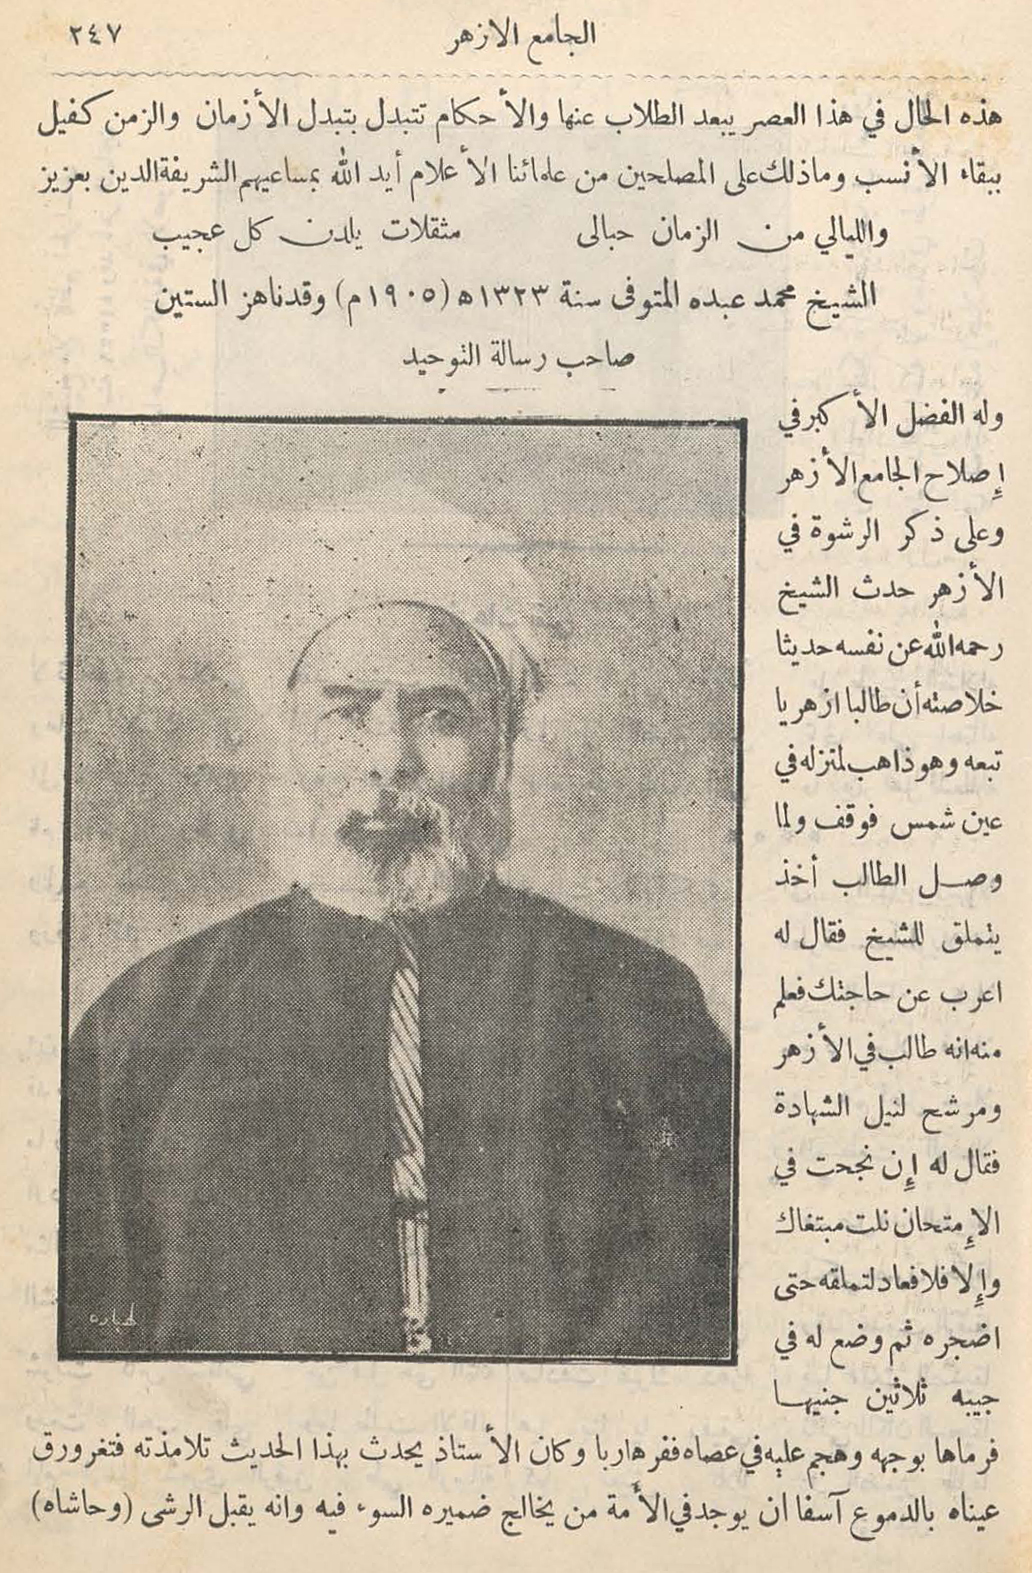 الجامع الازهر ٢٤٧
هذه الحال في هذا العصر يبعد الطلاب عنها والأحكام تتبدل بتبدل الأزمان والزمن كفيل
ببقاء الأنسب وماذلك على المصلحين من علمائنا الأعلام أيد الله بمساعيهم الشريفة الدين بعزيز
والليالي من الزمان حبالى مثقلات يلدن كل عجيب
الشيخ محمد عبده المتوفى سنة ١٣٢٣ه (١٩٠٥ م) وقدناهز الستين
صاحب رسالة التوحيد
وله الفضل الأكبر في
إصلاح الجامع الأزهر
وعلى ذكر الرشوة في
الأزهر حدث الشيخ
رحمه الله عن نفسه حديثا
خلاصته أن طالبا ازهريا
تبعه وهو ذاهب لمنزله في
عين شمس فوقف ولما
وصل الطالب أخذ
يتملق للشيخ فقال له
اعرب عن حاجتك فعلم
منه انه طالب في الأزهر
ومرشح لنيل الشهادة
فقال له إن نجحت في
الإمتحان نلت مبتغاك
وإلا فلا فعاد لتملقه حتى
اضجره ثم وضع له في
جيبه ثلاثين جنيها
فرماها بوجهه وهجم عليه في عصاه ففر هاربا وكان الأستاذ يحدث بهذا الحديث تلامذته فتغرورق
عيناه بالدموع آسفا ان يوجد في الأمة من يخالج ضميره السوء فيه وانه يقبل الرشى (وحاشاه)